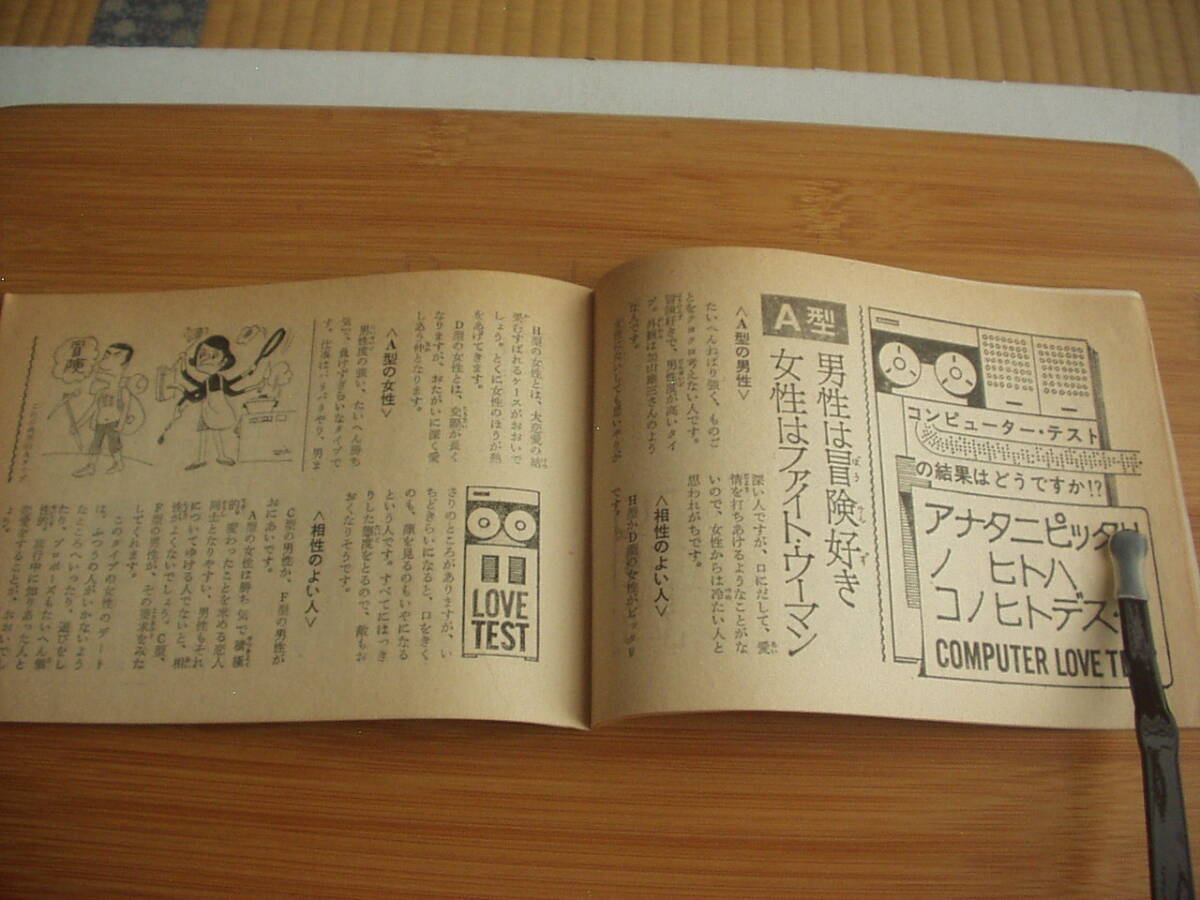 コンピューター・テスト
の結果はどうですか!?
アナタニピッタリ
ノ ヒトハ
コノヒトデス
COMPUTER LOVE TE
A型
男性は冒険好き
女性はファイト・ウーマン
〈A型の男性〉
たいへんねばり強く、ものご
とをクヨクヨ考えない人です。
冒険好きで、男性度が高いタイ
プ。外観は加山雄三さんのよう
な人です。
深い人ですが、口にだして、愛
情を打ちあけるようなことがな
いので、女性からは冷たい人と
思われがちです。
〈相性のよい人〉
H型かD型の女性がピッタリ
です。
H型の女性とは、大恋愛の結
実むすばれるケースがおおいで
しょう。とくに女性のほうが熱
をあげてきます。
D型の女性とは、交際が長く
なりますが、おたがいに深く愛
しあう仲となります。
〈A型の女性〉
男性度の強い、たいへん勝ち
気で、負けずぎらいなタイプで
す。仕事は、テキパキやり、男ま
LOVE
TEST
さりのところがありますが、い
ちどきらいになると、口をきく
のも、顔を見るのもいやになる
という人です。すべてにはっき
りした態度をとるので、敵もお
おくなりそうです。
〈相性のよい人〉
C型の男性か、F型の男性が
おにあいです。
A型の女性は勝ち気で積極
的、変わったことを求める恋人
同士となりやすい、男性もそれ
についてゆける人でないと、相
性がよくないでしょう。C型、
F型の男性が、その要求をみた
してくれます。
このタイプの女性のデート
は、ふつうの人がいかないよう
なところへいったり、遊びをし
たり、プロポーズもたいへん個
性的。旅行中に知りあった人と
恋愛をすることが、おおいでし
ょう。
冒険